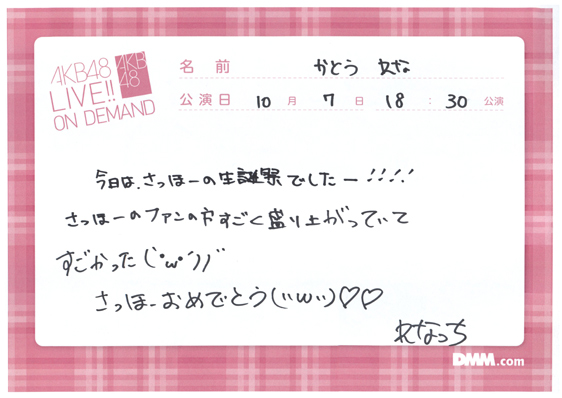 AKB48
AKB
48
LIVE!!
ON DEMAND
名前 かとう れな
公演日 10月 7日 18:30公演
今日は、さっほーの生誕祭でしたー!!!!
さっほーのファンの方すごく盛り上がっていて
すごかった(`・ω・´)ﾉﾞ
さっほーおめでとう(´ω｀)♡♡
れなっち
DMM.com